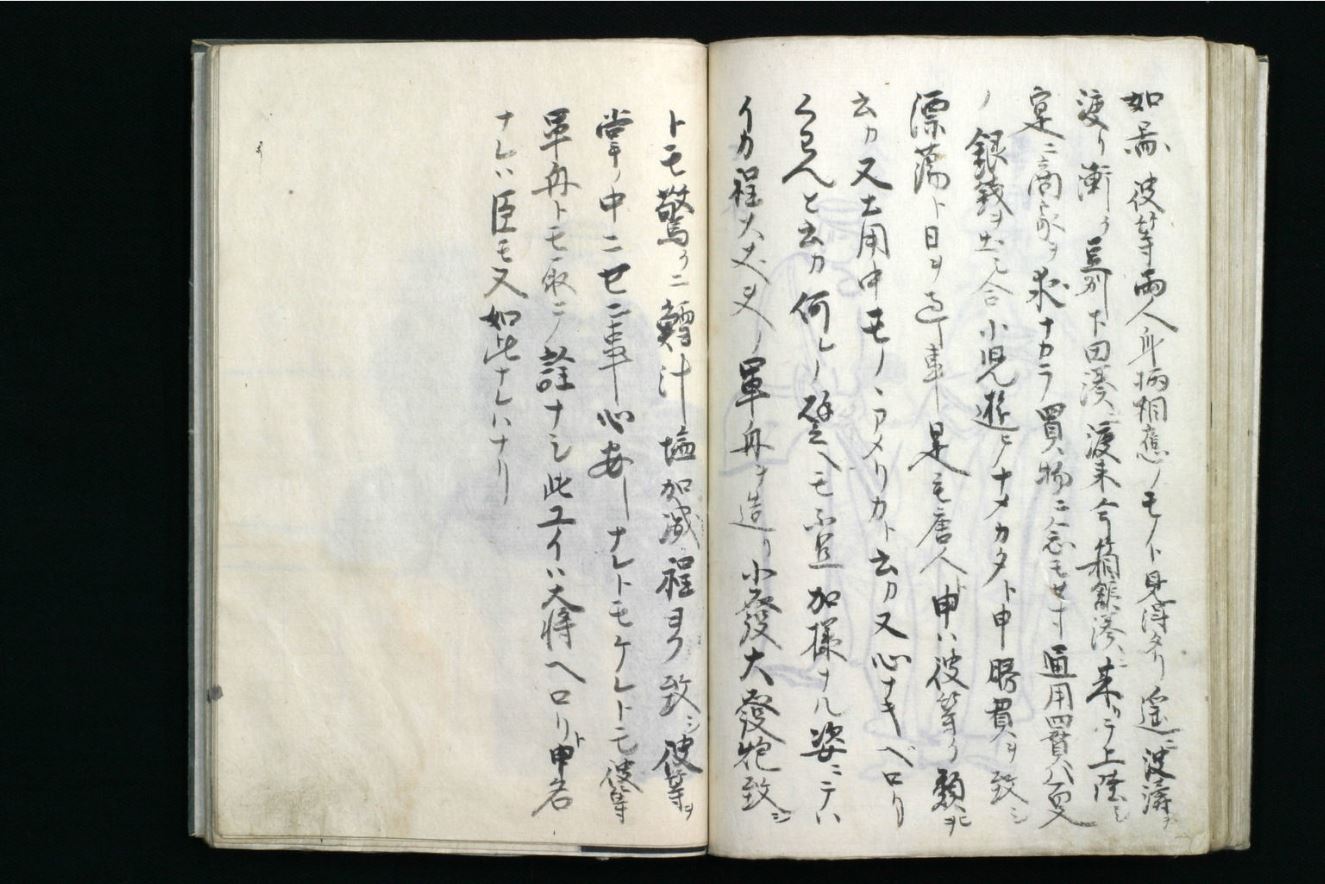 如蕭彼等両人身柄相應ノモノト見得タリ遥ニ波濤ヲ
渡リ衝ク豆州下田湊ニ渡来今箱館湊ニ来リテ上陸シ
寔ニ商家ヲ求ナカラ買物ニ念モセス通用四貫八百文
ノ銀銭ヲ出シ合小児遊ヒナメカタト申賭買ヲ致シ
漂蕩ト日ヲ過事是モ唐人ト申ハ彼等ヲ類ヒヲ
云カ又土用中モノヽアメリカト云カ又心ナキペロリ
くらんと云カ何レノ譬ヘモ不足加様ナル姿ニテハ
イカ程大丈夫ノ軍舟ヲ造リ小發大發炮致シ
トモ驚クニ鱈汁塩加減程ヨク致シ彼等ヲ
掌ノ中ニセン事心安ナレトモケレトモ彼等
軍舟トモ取ニノ詮ナシ此ユイハ大将ヘロリト申者
ナレハ臣モ又如此ナレハナリ